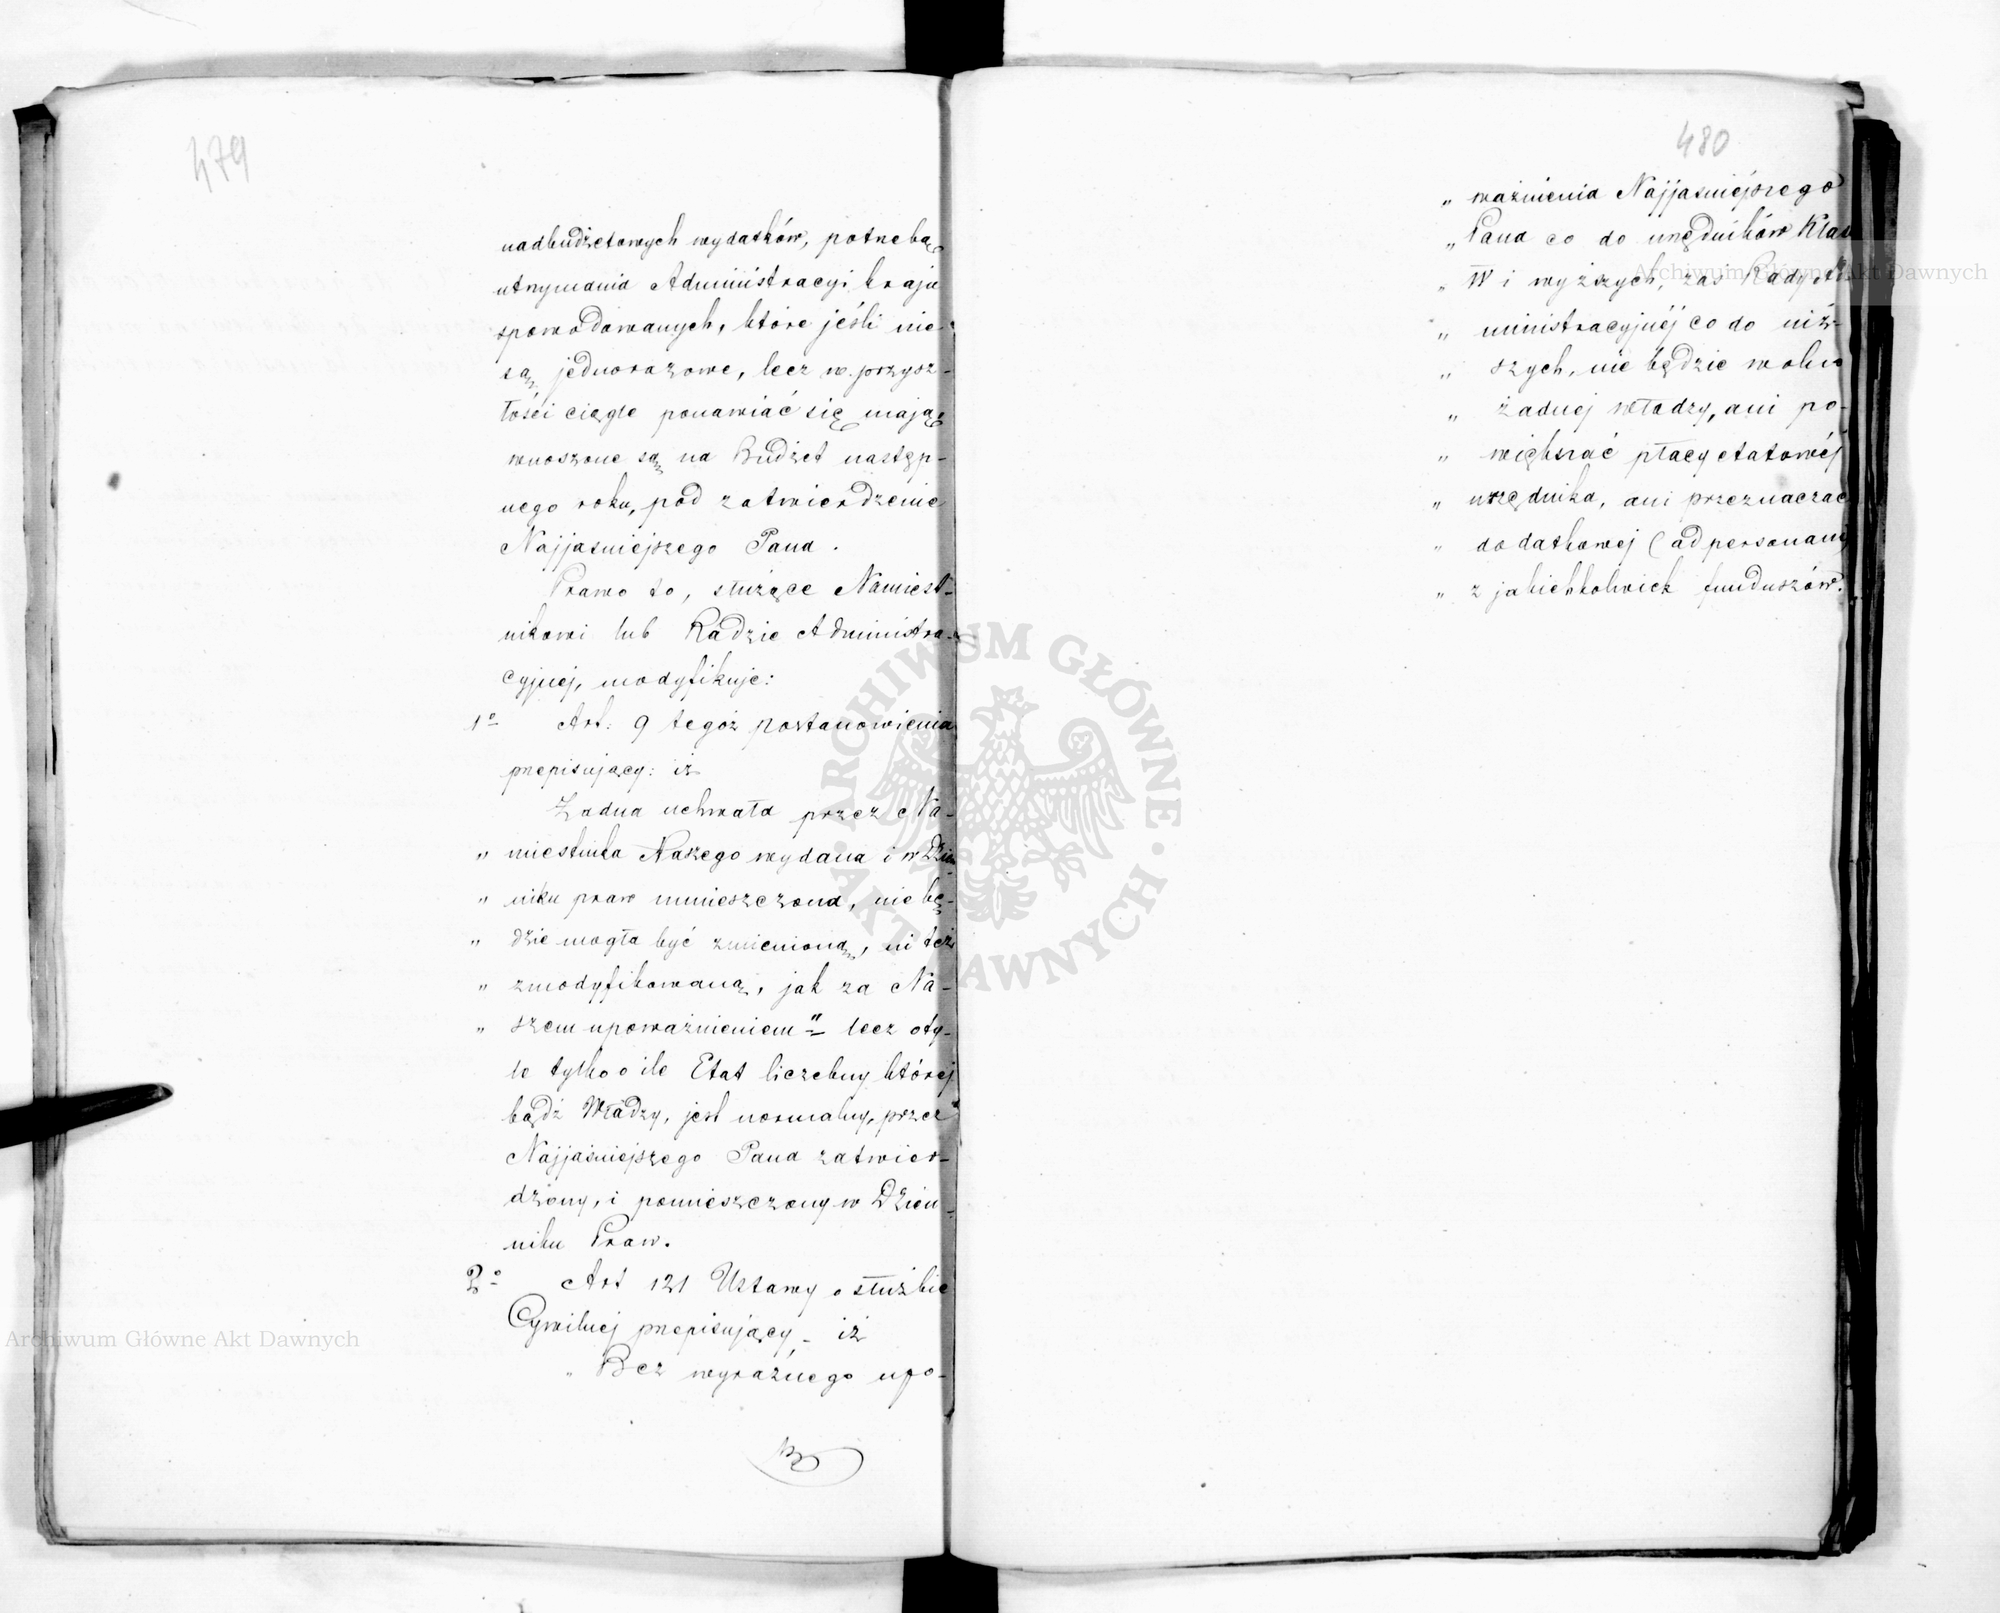 479
nadbudżetowych wydatków, potrzebą
utrzymania Administracyi kraju
spowodowanych, które jeśli nie
są jednorazowe, lecz w przysz-
łości ciągle ponawiać się mają,
wnoszone są na Budżet następ-
nego roku, pod zatwierdzenie
Najjaśniejszego Pana.
Prawo to, służące Namiest-
nikowi lub Radzie Administra-
cyjnej, modyfikuje:
1º Art. 9 tegoż postanowienia
przepisujący: iż
Żadna uchwała przez Na-
„ miestnika Naszego wydana i w Dzien-
„ niku praw umieszczona, nie bę-
„ dzie mogła być zmienioną, ni też
„ zmodyfikowaną, jak za Na-
„ szem upoważnieniem" lecz oty-
le tylko o ile Etat liczebny której
bądź Władzy, jest normalny, przez
Najjaśniejszego Pana zatwier-
dzony, i pomieszczony w Dzien-
niku Praw.
2º Art 121 Ustawy o służbie
Cywilnej przepisujący – iż
„ Bez wyraźnego upo-
480
„ ważnienia Najjaśniejszego
„ Pana co do urzędników Klas
„ IV i wyższych, zaś Rady Ad-
„ ministracyjnéj co do niż-
„ szych, nie będzie wolno
„ żadnej władzy, ani po-
„ większać płacy etatowéj
„ urzędnika, ani przeznaczać
„ dodatkowej (ad personam)
„ z jakichkolwiek funduszów.
Archiwum Główne Akt Dawnych
ARCHIWUM GŁÓWNE · AKT DAWNYCH ·
Archiwum Główne Akt Dawnych